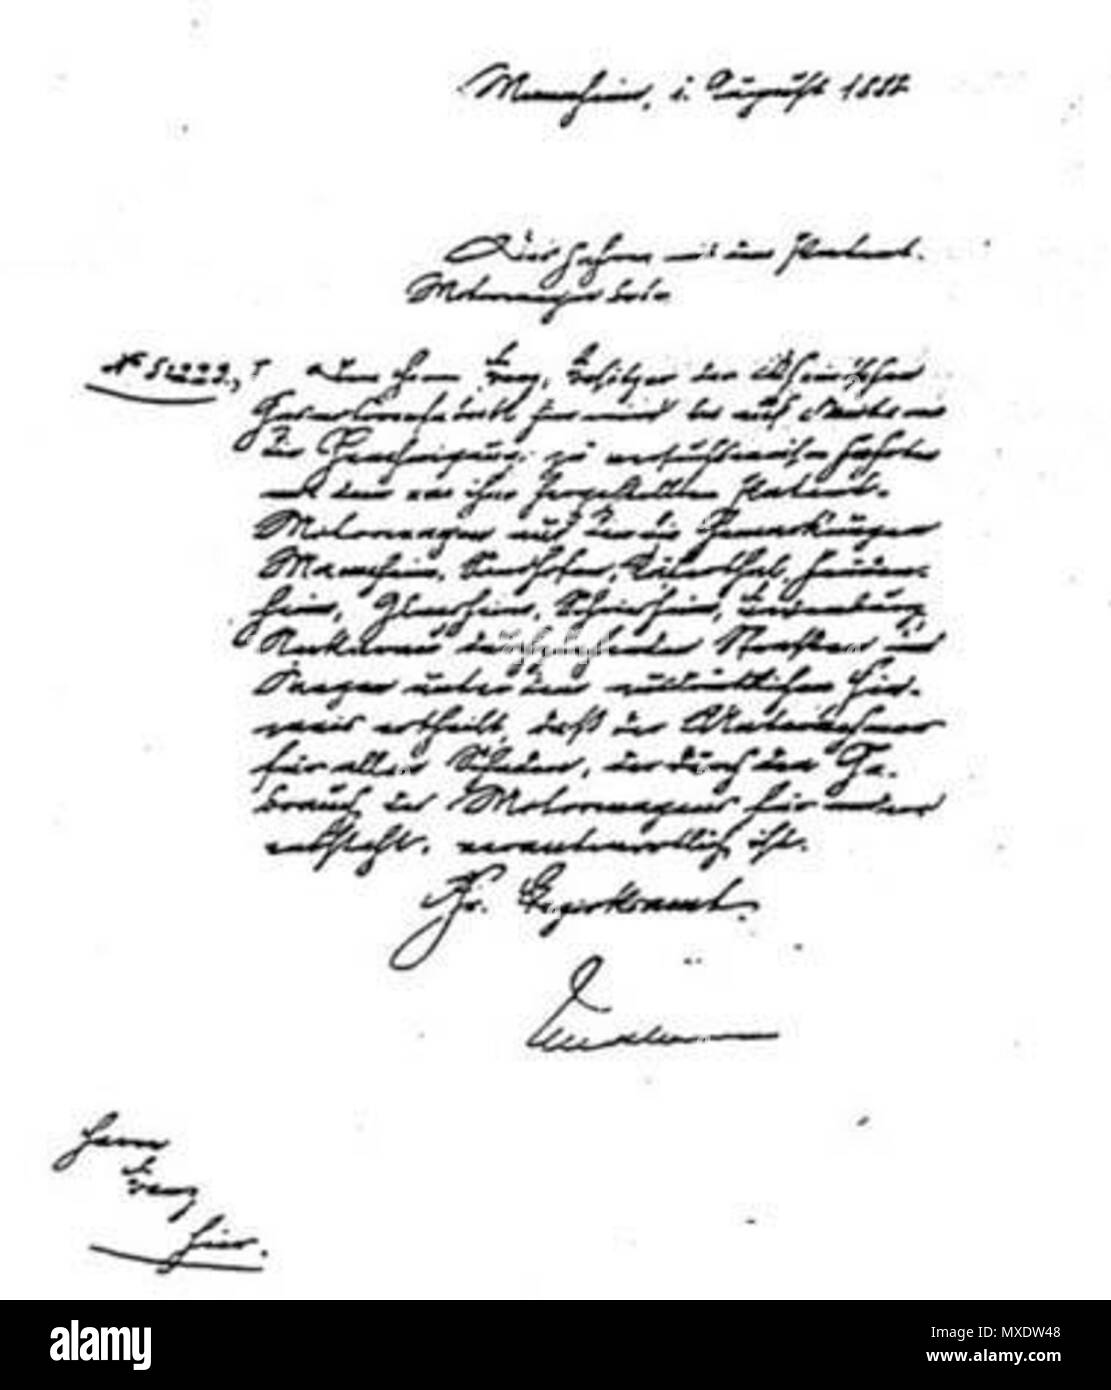 Mannheim, 1. August 1888
Das Fahren mit dem Patent-
Motorwagen betr.
No 51222, I Dem Herrn Benz, Besitzer der Rheinischen
Gasmotorenfabrik hier wird bis auf Weiteres
die Genehmigung zu versuchsweisen Fahrten
mit dem von ihm hergestellten Patent-
Motorwagen auf den die Gemarkungen
Mannheim, Sandhofen, Käferthal, Feuden-
heim, Ilvesheim, Schriesheim, Ladenburg,
Neckarau durchziehenden Strassen und
Wegen unter dem ausdrücklichen Hin-
weis ertheilt, dass der Unternehmer
für allen Schaden, der durch den Ge-
brauch des Motorwagens für andere
entsteht, verantwortlich ist.
Gr. Bezirksamt.
Herrn
Benz
hier.
alamy
alamy
Image ID: MXDW48
www.alamy.com